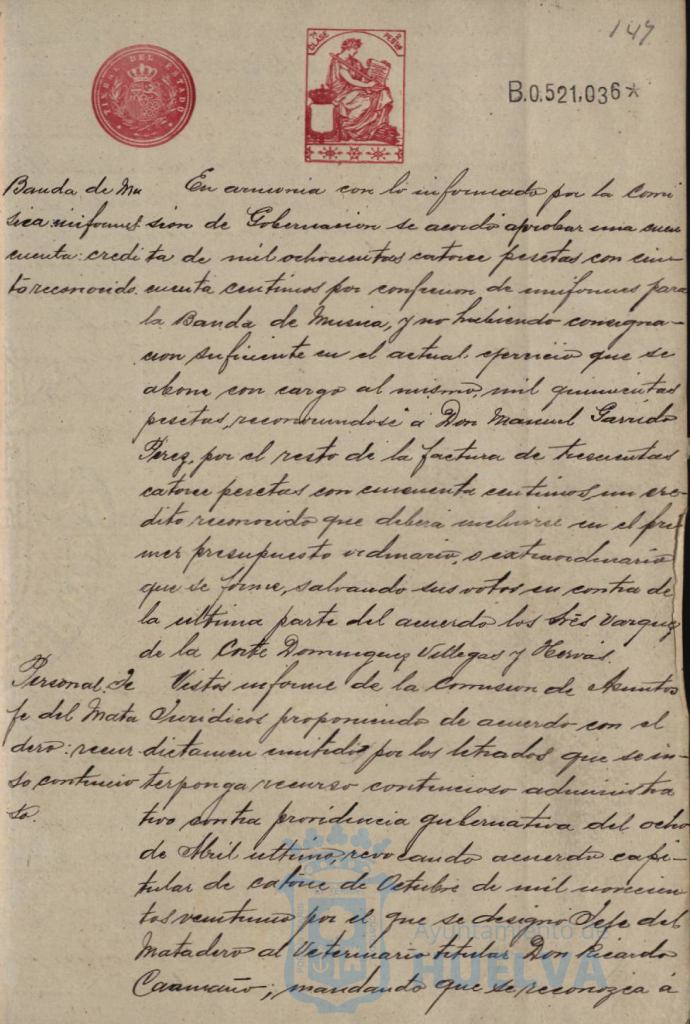 147
TIMBRE DEL ESTADO
CLASE
B.0.521.036*
Banda de Mu
sica: uniformes
cuenta: credi
to reconocido.
En armonia con lo informado por la Comi
sion de Gobernacion se acordó aprobar una cuen
ta de mil ochocientas catorce pesetas con cin
cuenta centimos por confeccion de uniformes para
la Banda de Musica, y no habiendo consigna-
cion suficiente en el actual ejercicio que se
abone con cargo al mismo, mil quinientas
pesetas, reconociendose á Don Manuel Garrido
Pérez, por el resto de la factura de trescientas
catorce pesetas con cincuenta centimos, un cre-
dito reconocido que deberá incluirse en el pri-
mer presupuesto ordinario, o extraordinario
que se forme, salvando sus votos en contra de
la ultima parte del acuerdo los Srés Vazquez
de la Corte Dominguez Villegas y Hervás.
Personal. Je
fe del Mata
dero: recur
so contencio
so.
Vistos informe de la Comision de Asuntos
Juridicos proponiendo de acuerdo con el
dictamen emitido por los letrados que se in-
terponga recurso contencioso administra
tivo contra providencia gubernativa del ocho
de Abril ultimo, revocando acuerdo capi-
tular de catorce de Octubre de mil novecien
tos veintiuno por el que se designó Jefe del
Matadero al Veterinario titular Don Ricardo
Caamaño; mandando que se reconozca á
Ayuntamiento de
HUELVA